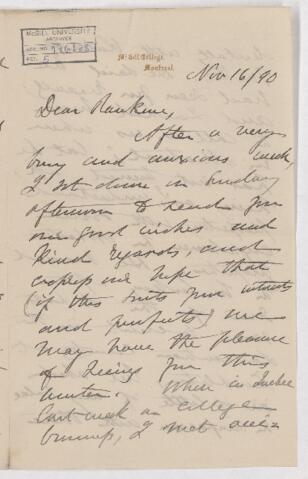 McGILL UNIVERSITY
ARCHIVES
ACC. NO.
REF. 5
McGill College,
Montreal.
Nov 16/90
Dear Rankine,
After a very
busy and anxious week,
I sit down on Sunday
afternoon to send you
our good wishes and
kind regards, and
express our hope that
(if this suits your interests
and prospects) we
may have the pleasure
of seeing you this
winter. When in Quebec
last week on college
business, I met